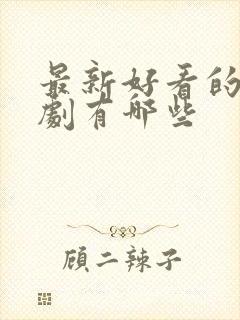 最新好看的
劇有哪些
顾二辣子